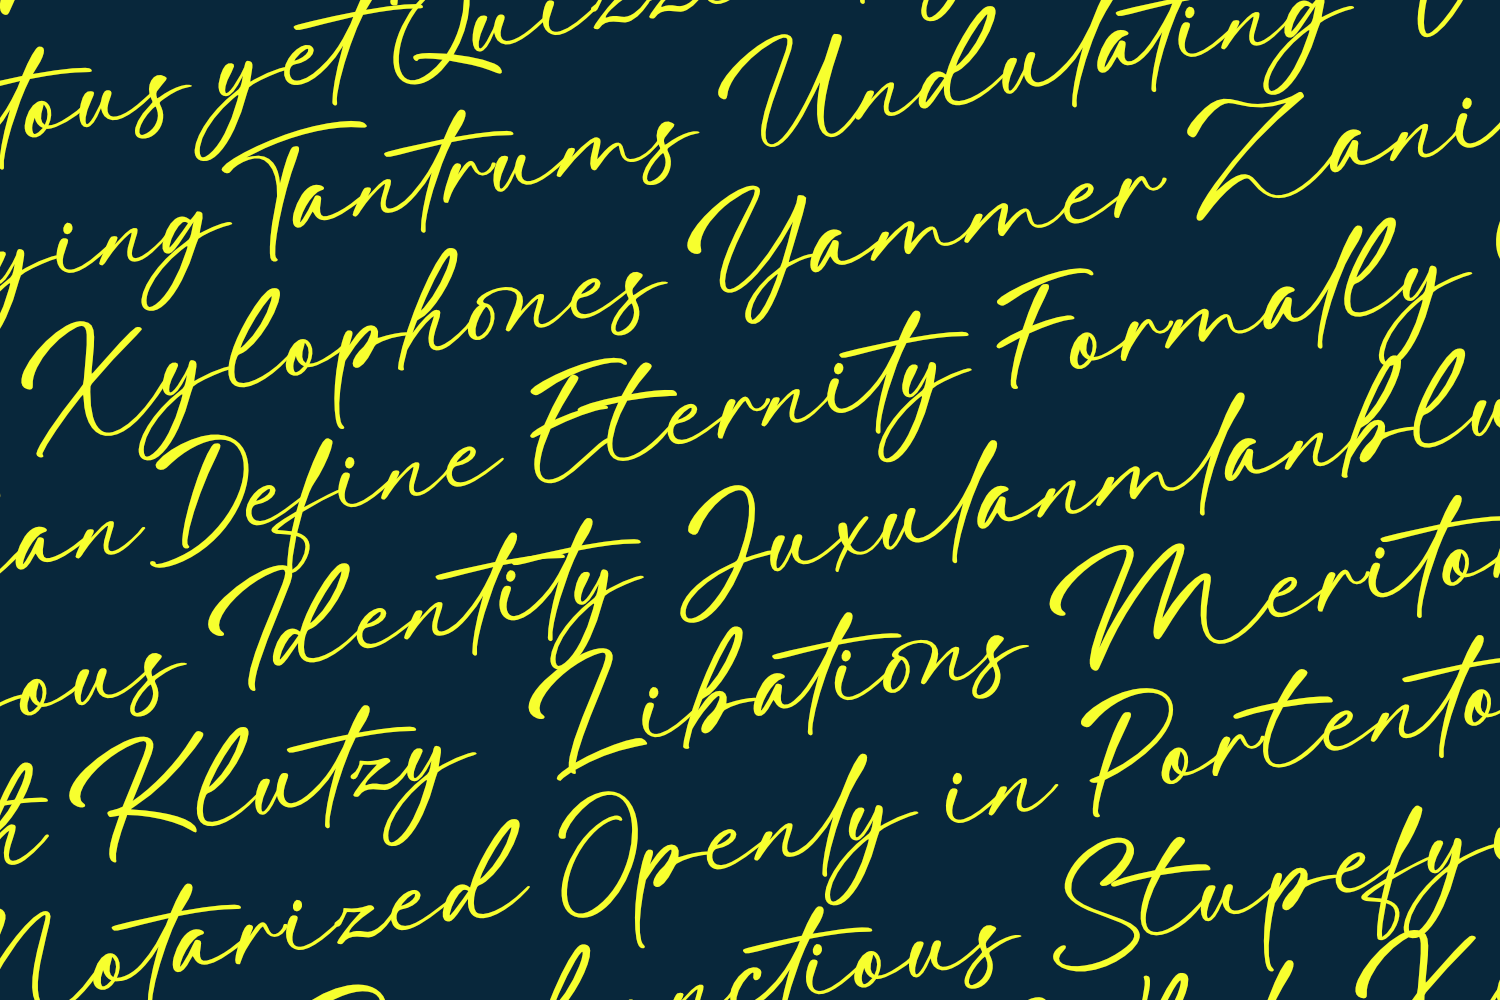 tous yet Quizz
ying Tantrums Undulating
Xylophones Yammer Zani
an Define Eternity Formally
ous Identity Juxulanmlanblu
h Klutzy Libations Meritor
Notarized Openly in Portento
nctious Stupefy